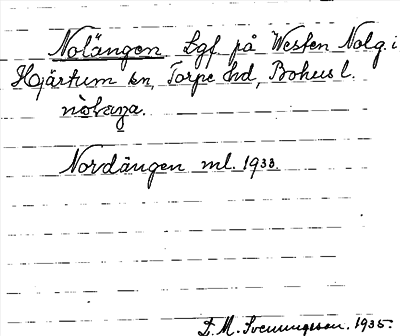 Nolängen Lgf på Westen Nolg. i
Hjärtum sn, Torpe hd, Bohusl.
Nordängen ml. 1933.
D. M. Svenningsson. 1935.